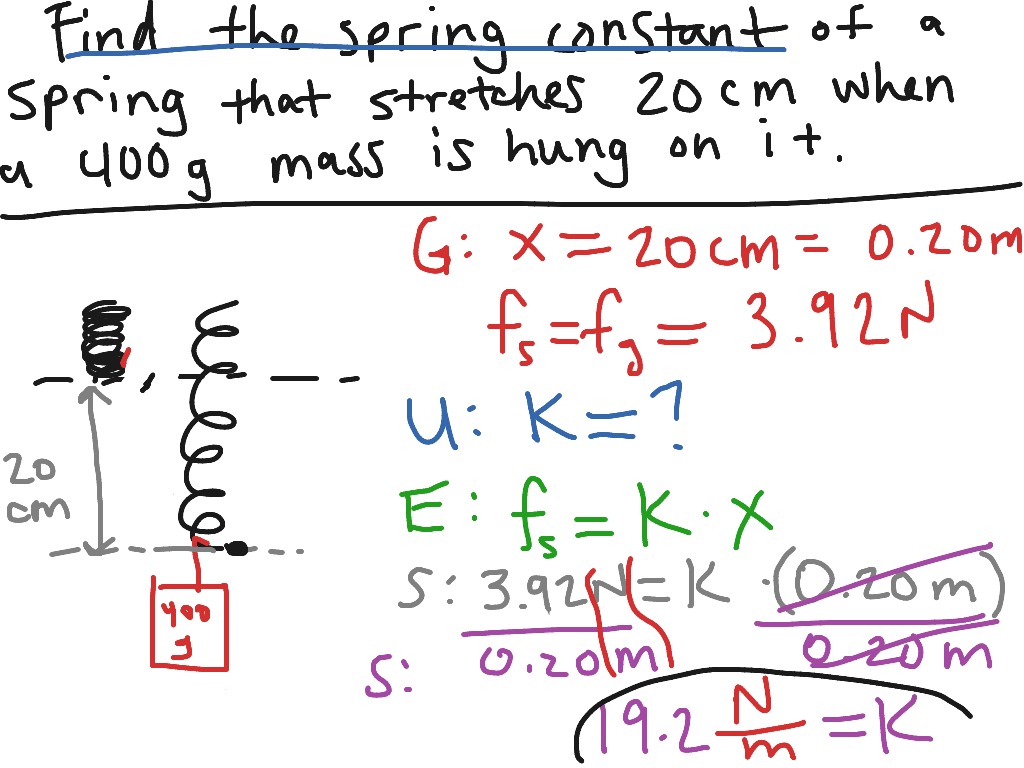 Find the spring constant of a
spring that stretches 20 cm when
a 400 g mass is hung on it.
G: x = 20 cm = 0.20 m
fs = fg = 3.92 N
U: K = ?
20
cm
E: fs = K · x
S: 3.92 N = K · (0.20 m)
400
g
0.20 m 0.20 m
S:
19.2 N/m = K